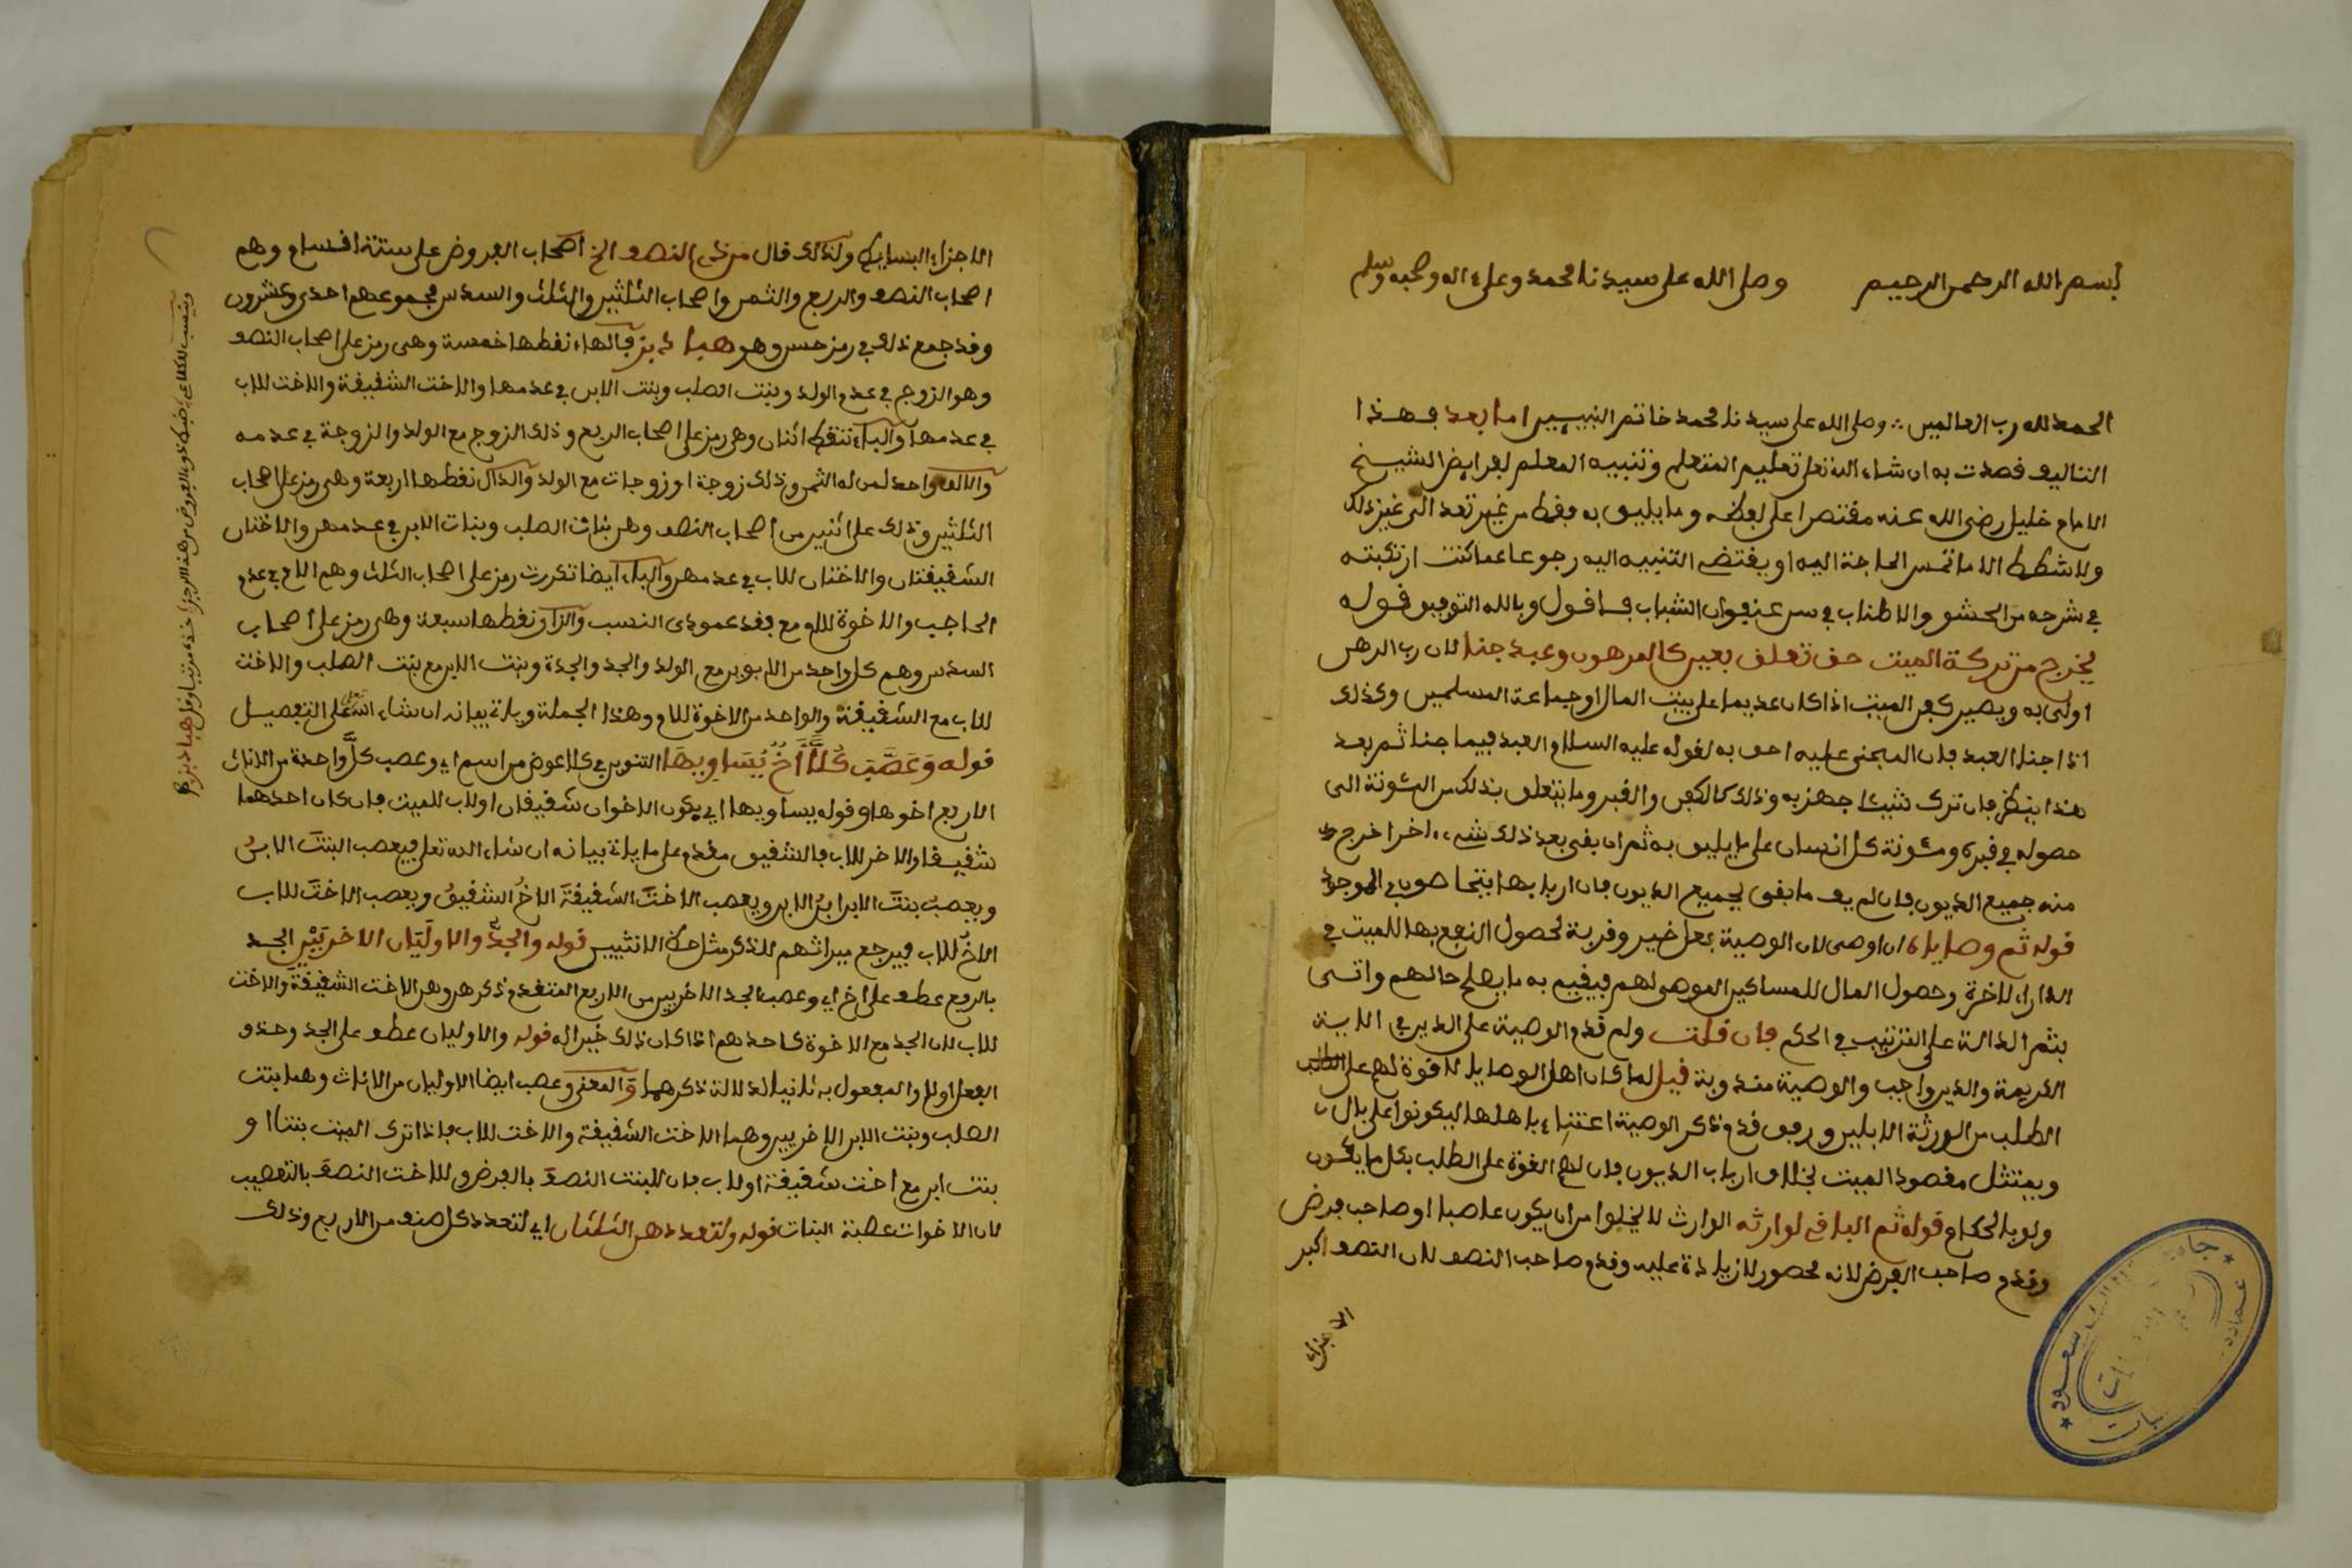 بسم الله الرحمن الرحيم وصلى الله على سيدنا محمد وعلى ءاله وصحبه وسلم
الحمد لله رب العالمين وصلى الله على سيدنا محمد خاتم النبيين اما بعد فهذا
التاليف قصدت به ان شاء الله تعلى تعليم المتعلم وتنبيه المعلم لفرايض الشيخ
الامام خليل رضى الله عنه مقتصرا على لفظه وما يليق به فقط من غير تعد الى غير ذلك
ولا شطط الا ما تمس الحاجة اليه او يقتضى التنبيه اليه رجوعا عما كنت ارتكبته
في شرحه من الحشو والاطناب في سن عنفوان الشباب فاقول وبالله التوفيق قوله
يخرج من تركة الميت حق تعلق بعين كالمرهون وعبد جنا لان رب الرهن
اولى به ويصير كفن الميت اذا كان عديما على بيت المال او جماعة المسلمين وكذلك
اذا جنا العبد فان المجنى عليه احق به لقوله عليه السلام العبد فيما جنا ثم بعد
هذا ينظر فان ترك شيئا جهز به وذلك كالكفن والقبر وما يتعلق بذلك من المئونة الى
حصوله في قبره ومئونة كل انسان على ما يليق به ثم ان بقى بعد ذلك شىء اخر اخرج
منه جميع الديون فان لم يف ما بقى بجميع الديون فان اربابها يتحاصون في الموجود
قوله ثم وصاياه ان اوصى لان الوصية فعل خير وقربة لحصول النفع بها للميت في
الدار الاخرة وحصول المال للمساكين الموصى لهم فيقيم به ما يصلح حالهم واتى
بثم الدالة على الترتيب في الحكم فان قلت ولم قدم الوصية على الدين في الاية
الكريمة والدين واجب والوصية مندوبة قيل لما كان اهل الوصايا لا قوة لهم على
الطلب من الورثة الابلين ورفق قدم ذكر الوصية اعتناء باهلها ليكونوا على بال
ويمتثل مقصود الميت بخلاف ارباب الديون فان لهم القوة على الطلب بكل ما يكون
ولو بالحكام قوله ثم الباقى لوارثه الوارث لا يخلوا من ان يكون عاصبا او صاحب فرض
وقدم صاحب الفرض لانه محصور لا زيادة عليه وقدم صاحب النصف لان النصف اكبر
الاجزاء
جامعة سعود
عمادة
الاجزاء البسايط ولذلك قال من ذى النصف الخ اصحاب الفروض على ستة اقسام وهم
اصحاب النصف والربع والثمن واصحاب الثلثين والثلث والسدس مجموعهم احدى وعشرون
وقد جمع ذلك في رمز حسن وهو هبادبز فالهاء نقطها خمسة وهى رمز على اصحاب النصف
وهو الزوج في عدم الولد وبنت الصلب وبنت الابن في عدمها والاخت الشقيقة والاخت للاب
في عدمها والباء تنقط اثنان وهى رمز على اصحاب الربع وذلك الزوج مع الولد والزوجة في عدمه
والالف واحد لمن له الثمن وذلك زوجة او زوجات مع الولد والدال نقطها اربعة وهى رمز على اصحاب
الثلثين وذلك على اثنين من اصحاب النصف وهن بنات الصلب وبنات الابن في عدمهن والاختان
الشقيقتان والاختان للاب في عدمهن والباء ايضا تكررت رمز على اصحاب الثلث وهم الام في عدم
الحاجب والاخوة للام مع فقد عمودى النسب والزاى نقطها سبعة وهى رمز على اصحاب
السدس وهم كل واحد من الابوين مع الولد والجد والجدة وبنت الابن مع بنت الصلب والاخت
للاب مع الشقيقة والواحد من الاخوة للام وهذا الجملة وياتى بيانه ان شاء الله تعلى على التفصيل
قوله وَعَصَّبَ كُلاًّ أَخٌ يُسَاوِيهَا التنوين في كلا عوض من اسم اى وعصب كل واحدة من الاناث
الاربع اخوها وقوله يساويها اى يكون الاخوان شقيقان او لاب للميت فان كان احدهما
شقيقا والاخر للاب فالشقيق مقدم على ما ياتى بيانه ان شاء الله تعلى فيعصب البنت الابن
ويعصب بنت الابن ابن الابن ويعصب الاخت الشقيقة الاخ الشقيق ويعصب الاخت للاب
الاخ للاب فيرجع ميراثهم للذكر مثل حظ الانثيين قوله والجدُّ والاوليان الاخريين الجد
بالرفع عطف على اخ اى وعصب الجد الاخريين من الاربع المتقدم ذكرهن وهن الاخت الشقيقة والاخت
للاب لان الجد مع الاخوة كاحدهم اذا كان ذلك خيرا له قوله والاوليان عطف على الجد وحذف
الفعل اولا والمفعول به ثانيا لدلالة ذكرهما والمعنى وعصب ايضا الاوليان من الاناث وهما بنت
الصلب وبنت الابن الاخريين وهما الاخت الشقيقة والاخت للاب فاذا ترك الميت بنتا او
بنت ابن مع اخت شقيقة او لاب فان للبنت النصف بالفرض وللاخت النصف بالتعصيب
لان الاخوات عصبة البنات قوله ولتعددهن الثلثان اى لتعدد كل صنف من الاربع وذلك